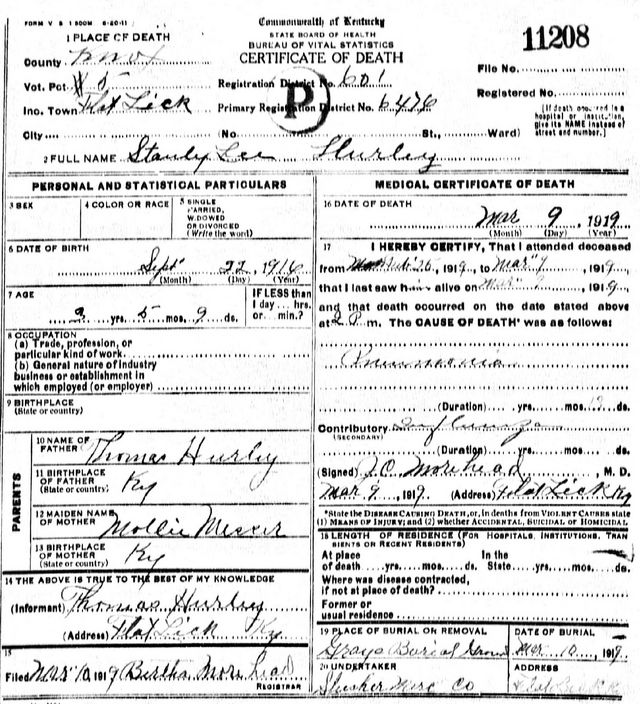 FORM V S 1 500M 6-20-11
Commonwealth of Kentucky
STATE BOARD OF HEALTH
BUREAU OF VITAL STATISTICS
CERTIFICATE OF DEATH
11208
1 PLACE OF DEATH
County Knox
Vot. Pct. # 5
Inc. Town Flat Lick
City
Registration District No. 601
Primary Registration District No. 6476
P
(No St., Ward)
File No.
Registered No.
(If death occurred in a
hospital or institution,
give its NAME instead of
street and number.)
2 FULL NAME Stanly Lee Hurley
PERSONAL AND STATISTICAL PARTICULARS
3 SEX
4 COLOR OR RACE
5 SINGLE
MARRIED,
WIDOWED
OR DIVORCED
(Write the word)
6 DATE OF BIRTH
Sept 22, 1916
(Month) (Day) (Year)
7 AGE
2 yrs. 5 mos. 9 ds.
IF LESS than
1 day... hrs.
or... min.?
8 OCCUPATION
(a) Trade, profession, or
particular kind of work
(b) General nature of industry
business or establishment in
which employed (or employer)
9 BIRTHPLACE
(State or country)
PARENTS
10 NAME OF
FATHER Thomas Hurley
11 BIRTHPLACE
OF FATHER
(State or country) Ky
12 MAIDEN NAME
OF MOTHER Mollie Messer
13 BIRTHPLACE
OF MOTHER
(State or country) Ky
14 THE ABOVE IS TRUE TO THE BEST OF MY KNOWLEDGE
(Informant) Thomas Hurley
(Address) Flat Lick Ky
15
Filed Mar 10, 1919 Bertha Morehead
REGISTRAR
MEDICAL CERTIFICATE OF DEATH
16 DATE OF DEATH
Mar 9, 1919
(Month) (Day) (Year)
17 I HEREBY CERTIFY, That I attended deceased
from 1919, to Mar 9, 1919,
that I last saw him alive on Mar 9, 1919
and that death occurred on the date stated above
at 2 P m. The CAUSE OF DEATH* was as follows:
Pneumonia
(Duration) yrs. mos. 12 ds.
Contributory Influenza
(SECONDARY)
(Duration) yrs. mos. ds.
(Signed) J.C. Morehead, M. D.
Mar 9, 1919. (Address) Flat Lick Ky
*State the DISEASE CAUSING DEATH, or, in deaths from VIOLENT CAUSES state
(1) MEANS OF INJURY; and (2) whether ACCIDENTAL, SUICIDAL OR HOMICIDAL
18 LENGTH OF RESIDENCE (FOR HOSPITALS, INSTITUTIONS, TRAN
SIENTS OR RECENT RESIDENTS)
At place In the
of death yrs. mos. ds. State yrs. mos. ds.
Where was disease contracted,
if not at place of death?
Former or
usual residence
19 PLACE OF BURIAL OR REMOVAL
Grays Burial Ground
DATE OF BURIAL
Mar 10, 1919.
20 UNDERTAKER
Slusher Merc Co
ADDRESS
Flat Lick Ky